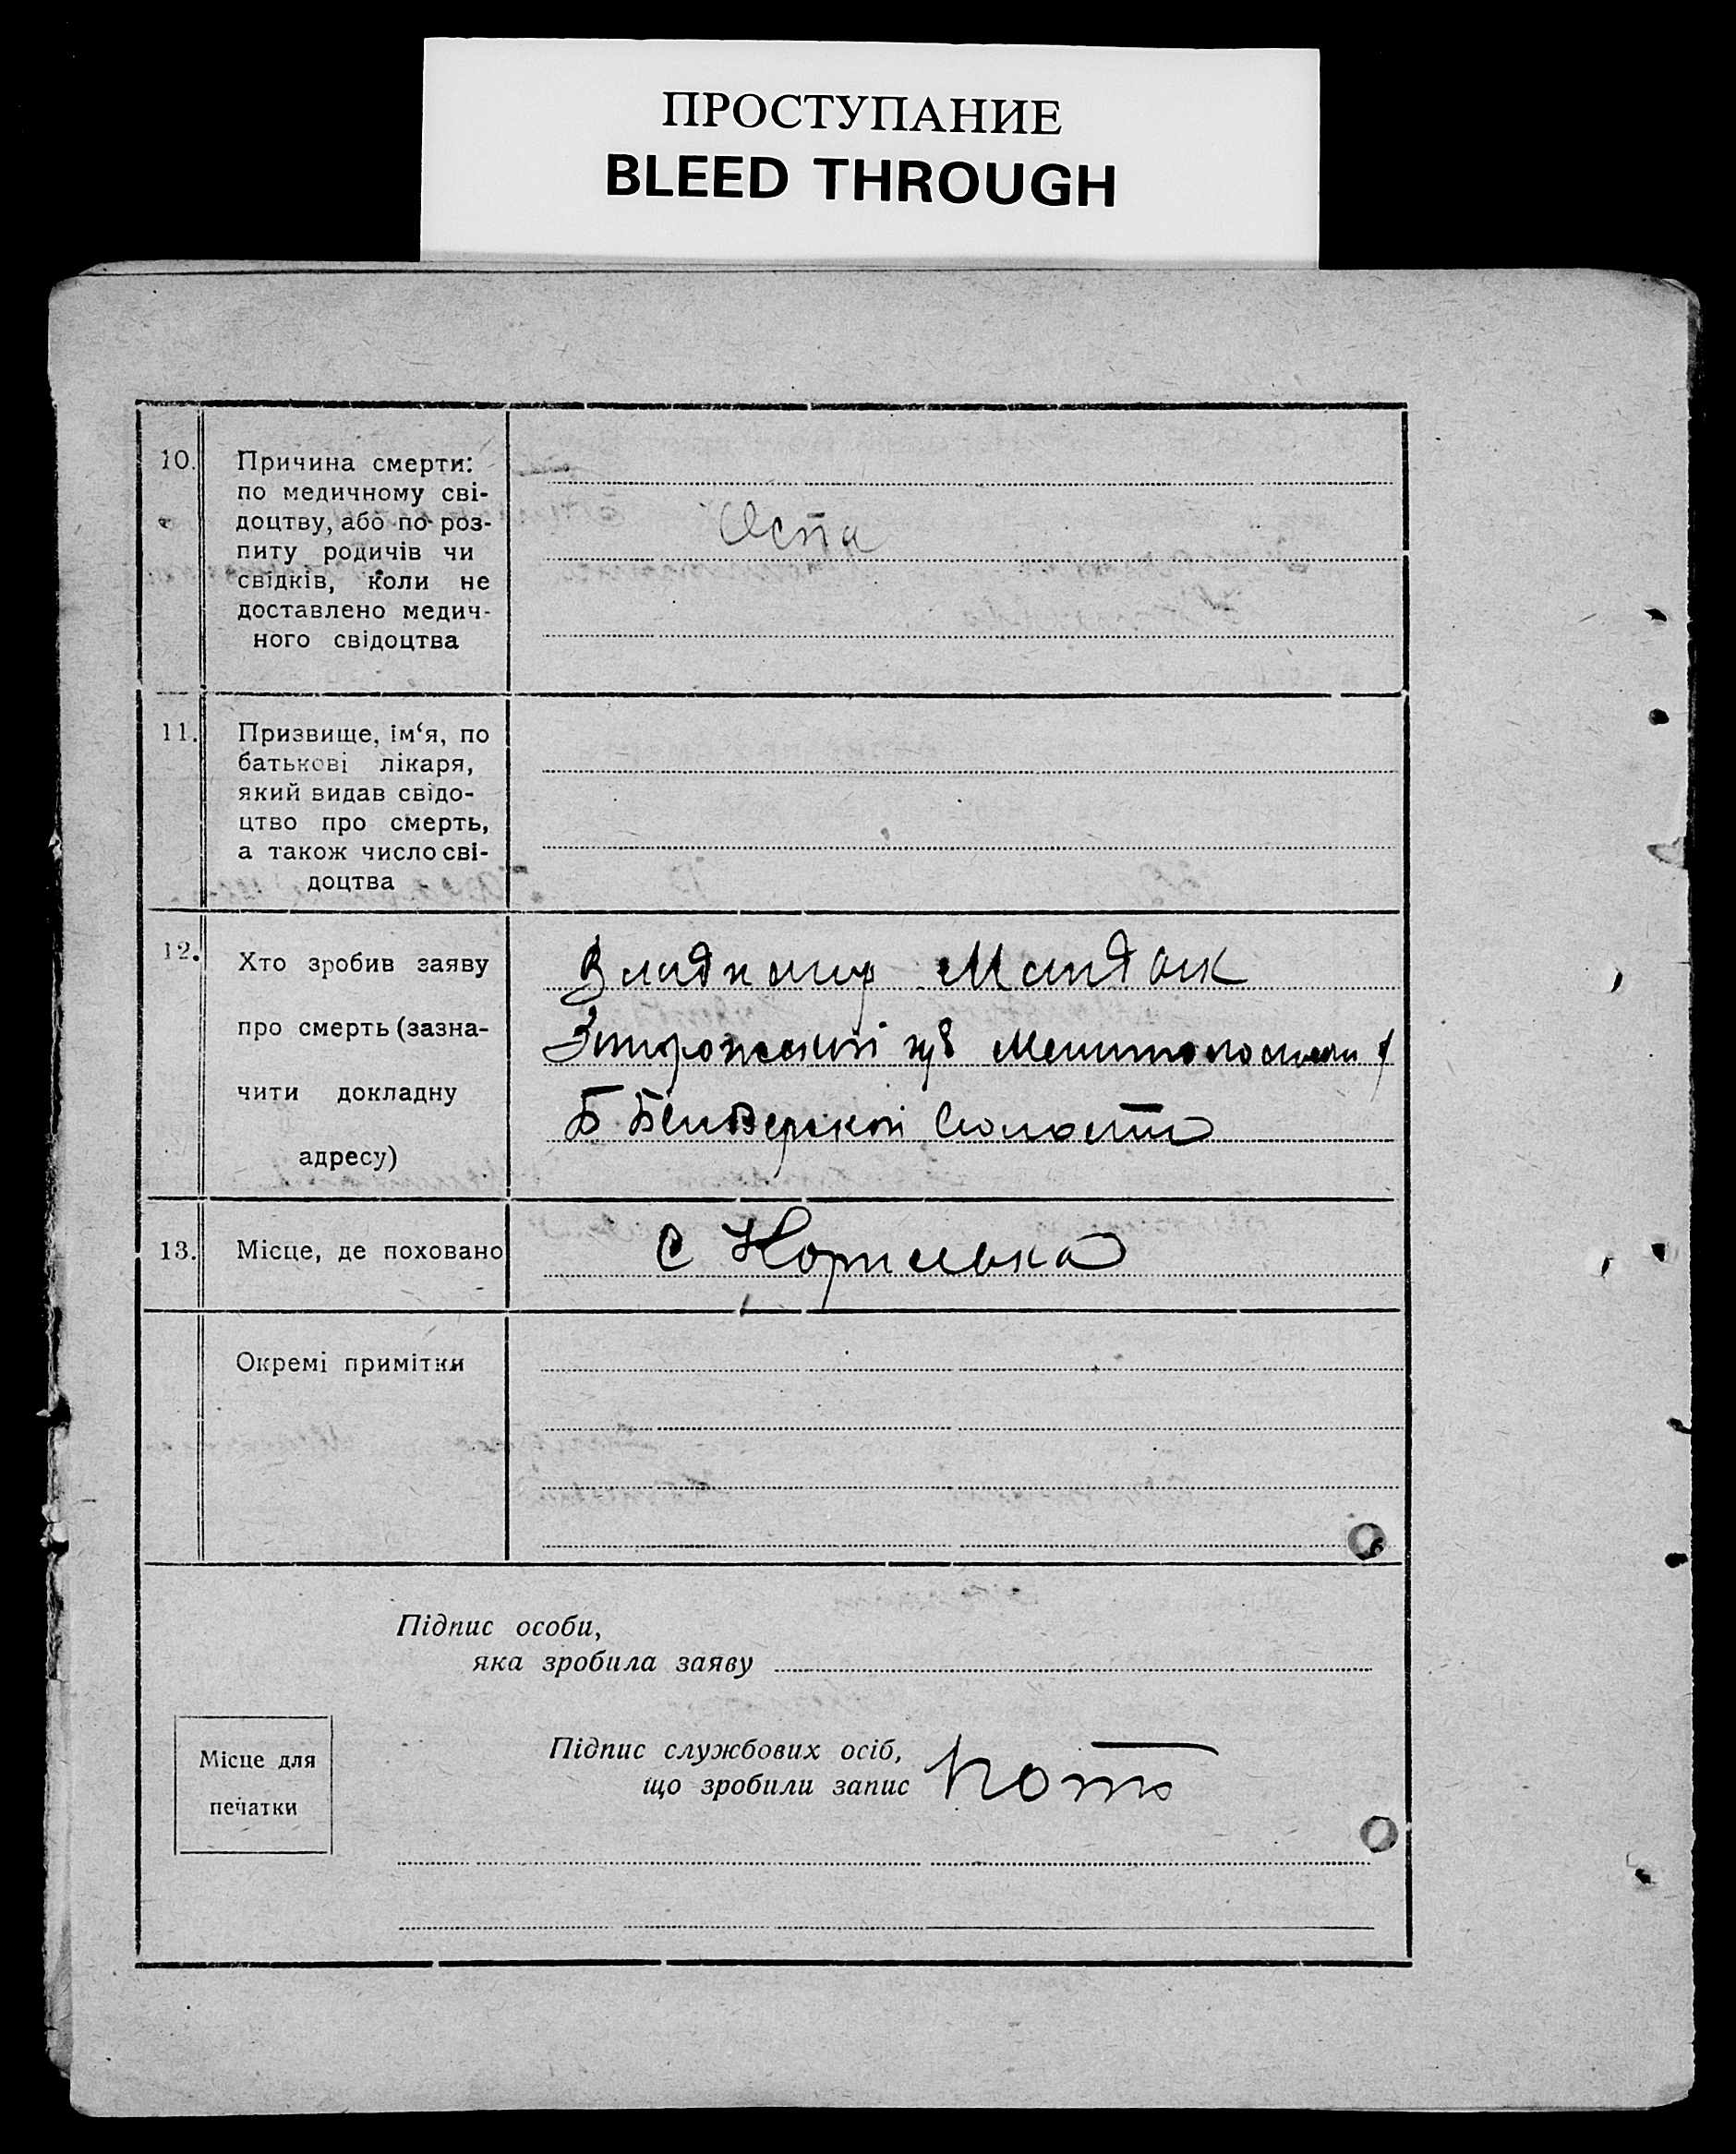 ПРОСТУПАНИЕ
BLEED THROUGH
10.
Причина смерти:
по медичному сві-
доцтву, або по роз-
питу родичів чи
свідків, коли не
доставлено медич-
ного свідоцтва
Оспа
11.
Призвище, ім‘я, по
батькові лікаря,
який видав свідо-
цтво про смерть,
а також число сві-
доцтва
12.
Хто зробив заяву
про смерть (зазна-
чити докладну
адресу)
Владимир
губ
Б
13.
Місце, де поховано
С
Окремі примітки
Підпис особи,
яка зробила заяву
Місце для
печатки
Підпис службових осіб,
що зробили запис